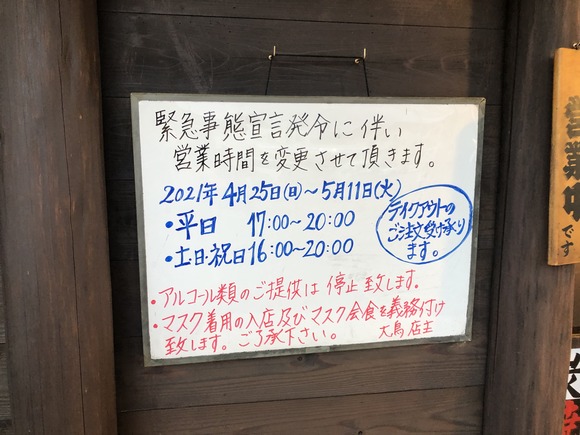 緊急事態宣言発令に伴い
営業時間を変更させて頂きます。
2021年4月25日(日)〜5月11日(火)
・平日 17:00〜20:00
・土日・祝日16:00〜20:00
テイクアウトの
ご注文受け承り
ます。
・アルコール類のご提供は停止致します。
・マスク着用の入店及びマスク会食を義務付け
致します。ご了承下さい。
大鳥 店主
営業
です